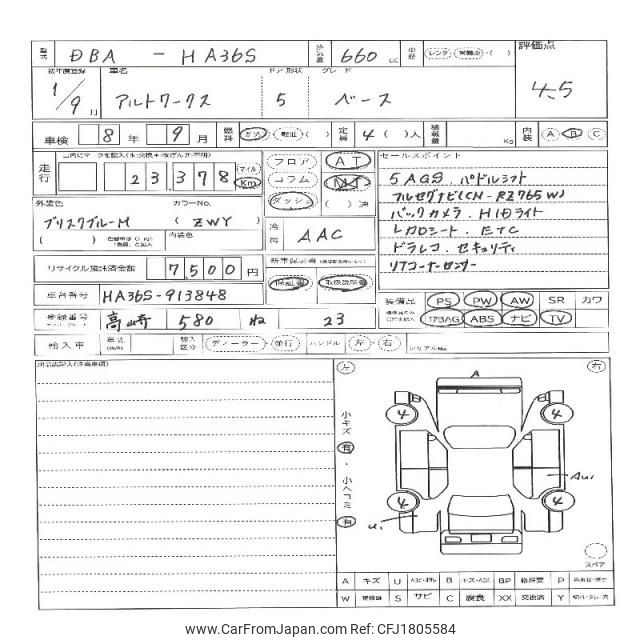 型式 DBA - HA36S 排気量 660 cc 車歴 レンタ・営業車・( ) 評価点
初年度登録 車名 ドア 形状 グレード
1/9月 アルトワークス 5 ベース 4.5
車検 8年 9月 燃料 ガソ 軽油 ( ) 定員 4( )人 積載量 Kg 内装 A B C
走行 23,378 マイル Km フロア AT セールスポイント
コラム MT 5AGS. パドルシフト
外装色 カラーNo. ダッシュ ( )速 フルセグナビ(CN-RZ765W)
ブリスクブルーM ( ZWY ) 冷房 AAC バックカメラ. HIDライト
( ) 内装色 レカロシート. ETC
ドラレコ. セキュリティ
リサイクル預託済金額 7,500円 新車保証書 リアコーナーセンサー
保証書 取扱説明書
車台番号 HA36S-913848 装備品 PS PW AW SR カワ
登録番号 高崎 580 ね 23 エアBAG ABS ナビ TV
輸入車 年式 輸入区分 ディーラー・並行 ハンドル 左・右 シリアルNo.
出品店記入(注意事項)
左 A 右
小キズ 有・小ヘコミ 有
4 4
AU1
4 4
U1
スペア
A キズ U B BP 修理要 P
W S サビ C 腐食 XX 交換済 Y
www.CarFromJapan.com - Ref No: CFJ1805584